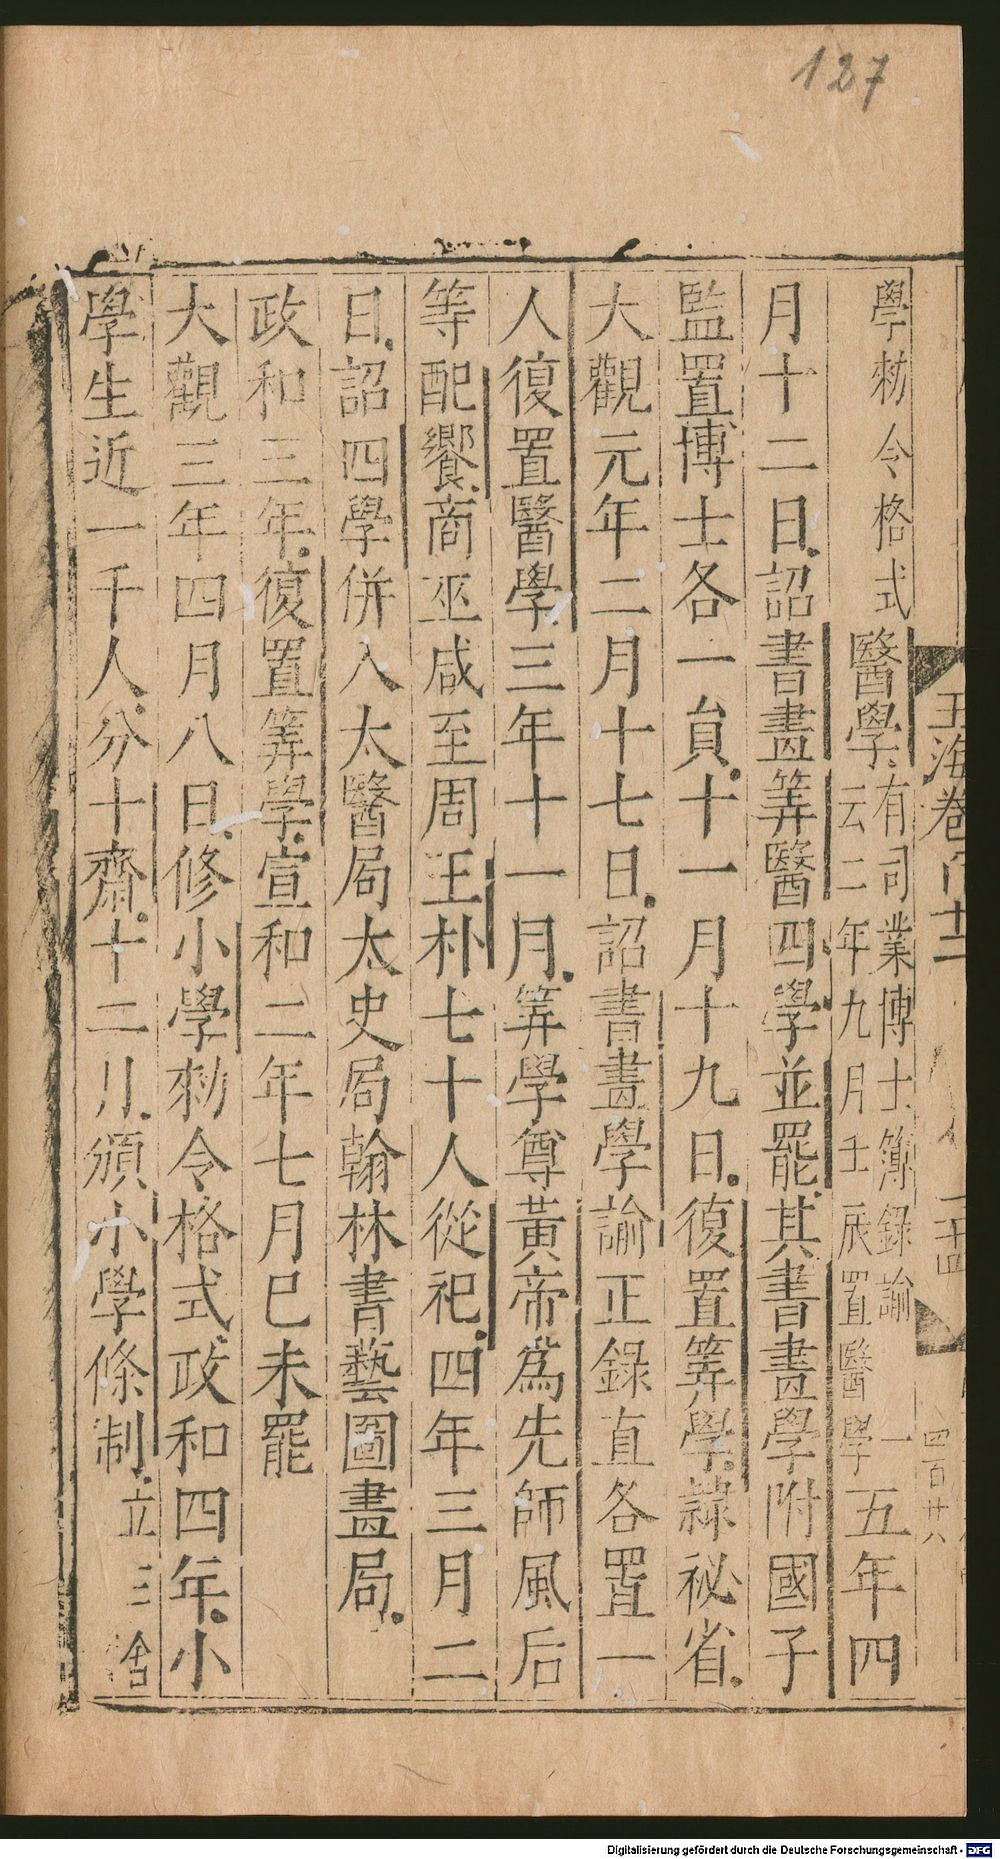 127
玉海卷百十二
四百廿六
學勑令格式醫學有司業博士簿錄諭一云二年九月壬辰置醫學五年四
月十二日詔書畫筭醫四學並罷其書畫學附國子
監置博士各一員十一月十九日復置筭學隷秘省
大觀元年二月十七日詔書畫學諭正錄直各置一
人復置醫學三年十一月筭學尊黃帝爲先師風后
等配饗商巫咸至周王朴七十人從祀四年三月二
日詔四學併入太醫局太史局翰林書藝圖畫局
政和三年復置筭學宣和二年七月巳未罷
大觀三年四月八日修小學勑令格式政和四年小
學生近一千人分十齋十二月頒小學條制立三舍
Digitalisierung gefördert durch die Deutsche Forschungsgemeinschaft - DFG